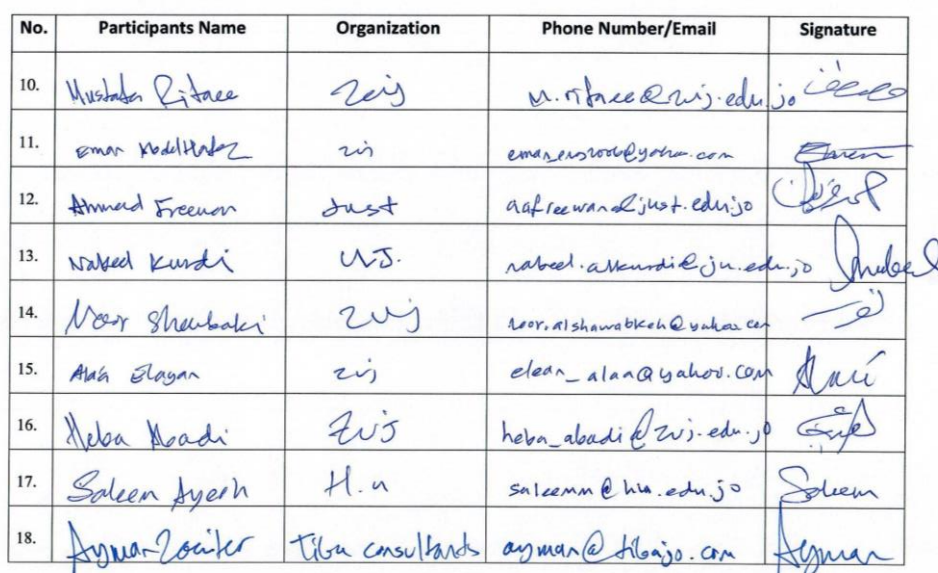 No. Participants Name Organization Phone Number/Email Signature
10. Mustafa Rifaee Zuj m.rifaee@zuj.edu.jo
11. Eman AbdelHafez zuj
12. Ahmad Freewan Just aafreewan@just.edu.jo
13. Nabeed Kurdi U.J. nabeel.alkurdi@ju.edu.jo
14. Noor Shawbaki ZUJ noor.alshawabkeh@yahoo.com نور
15. Alaa Elayan zuj elean_alaa@yahoo.com Alaa
16. Heba Abadi ZUJ heba_abadi@zuj.edu.jo
17. Saleem Ayesh H.u saleemm@hu.edu.jo Saleem
18. Ayman Tiba consultands ayman@tibajo.com Ayman